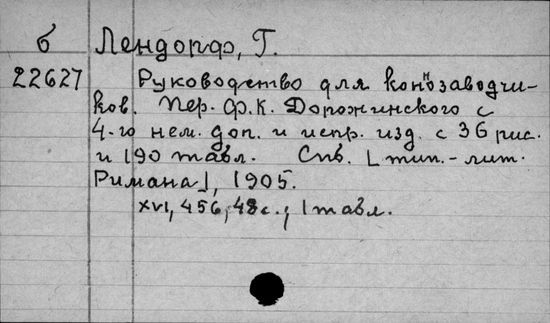 б Лендорф, Г.
22627 Руководство для коннозаводчи-
ков. Пер. Ф.К. Дорожинского с
4-го нем. доп. и испр. изд. с 36 рис.
и 190 табл. Спб. [тип.-лит.
Римана], 1905.
XVI, 456, 48 с., 1 табл.